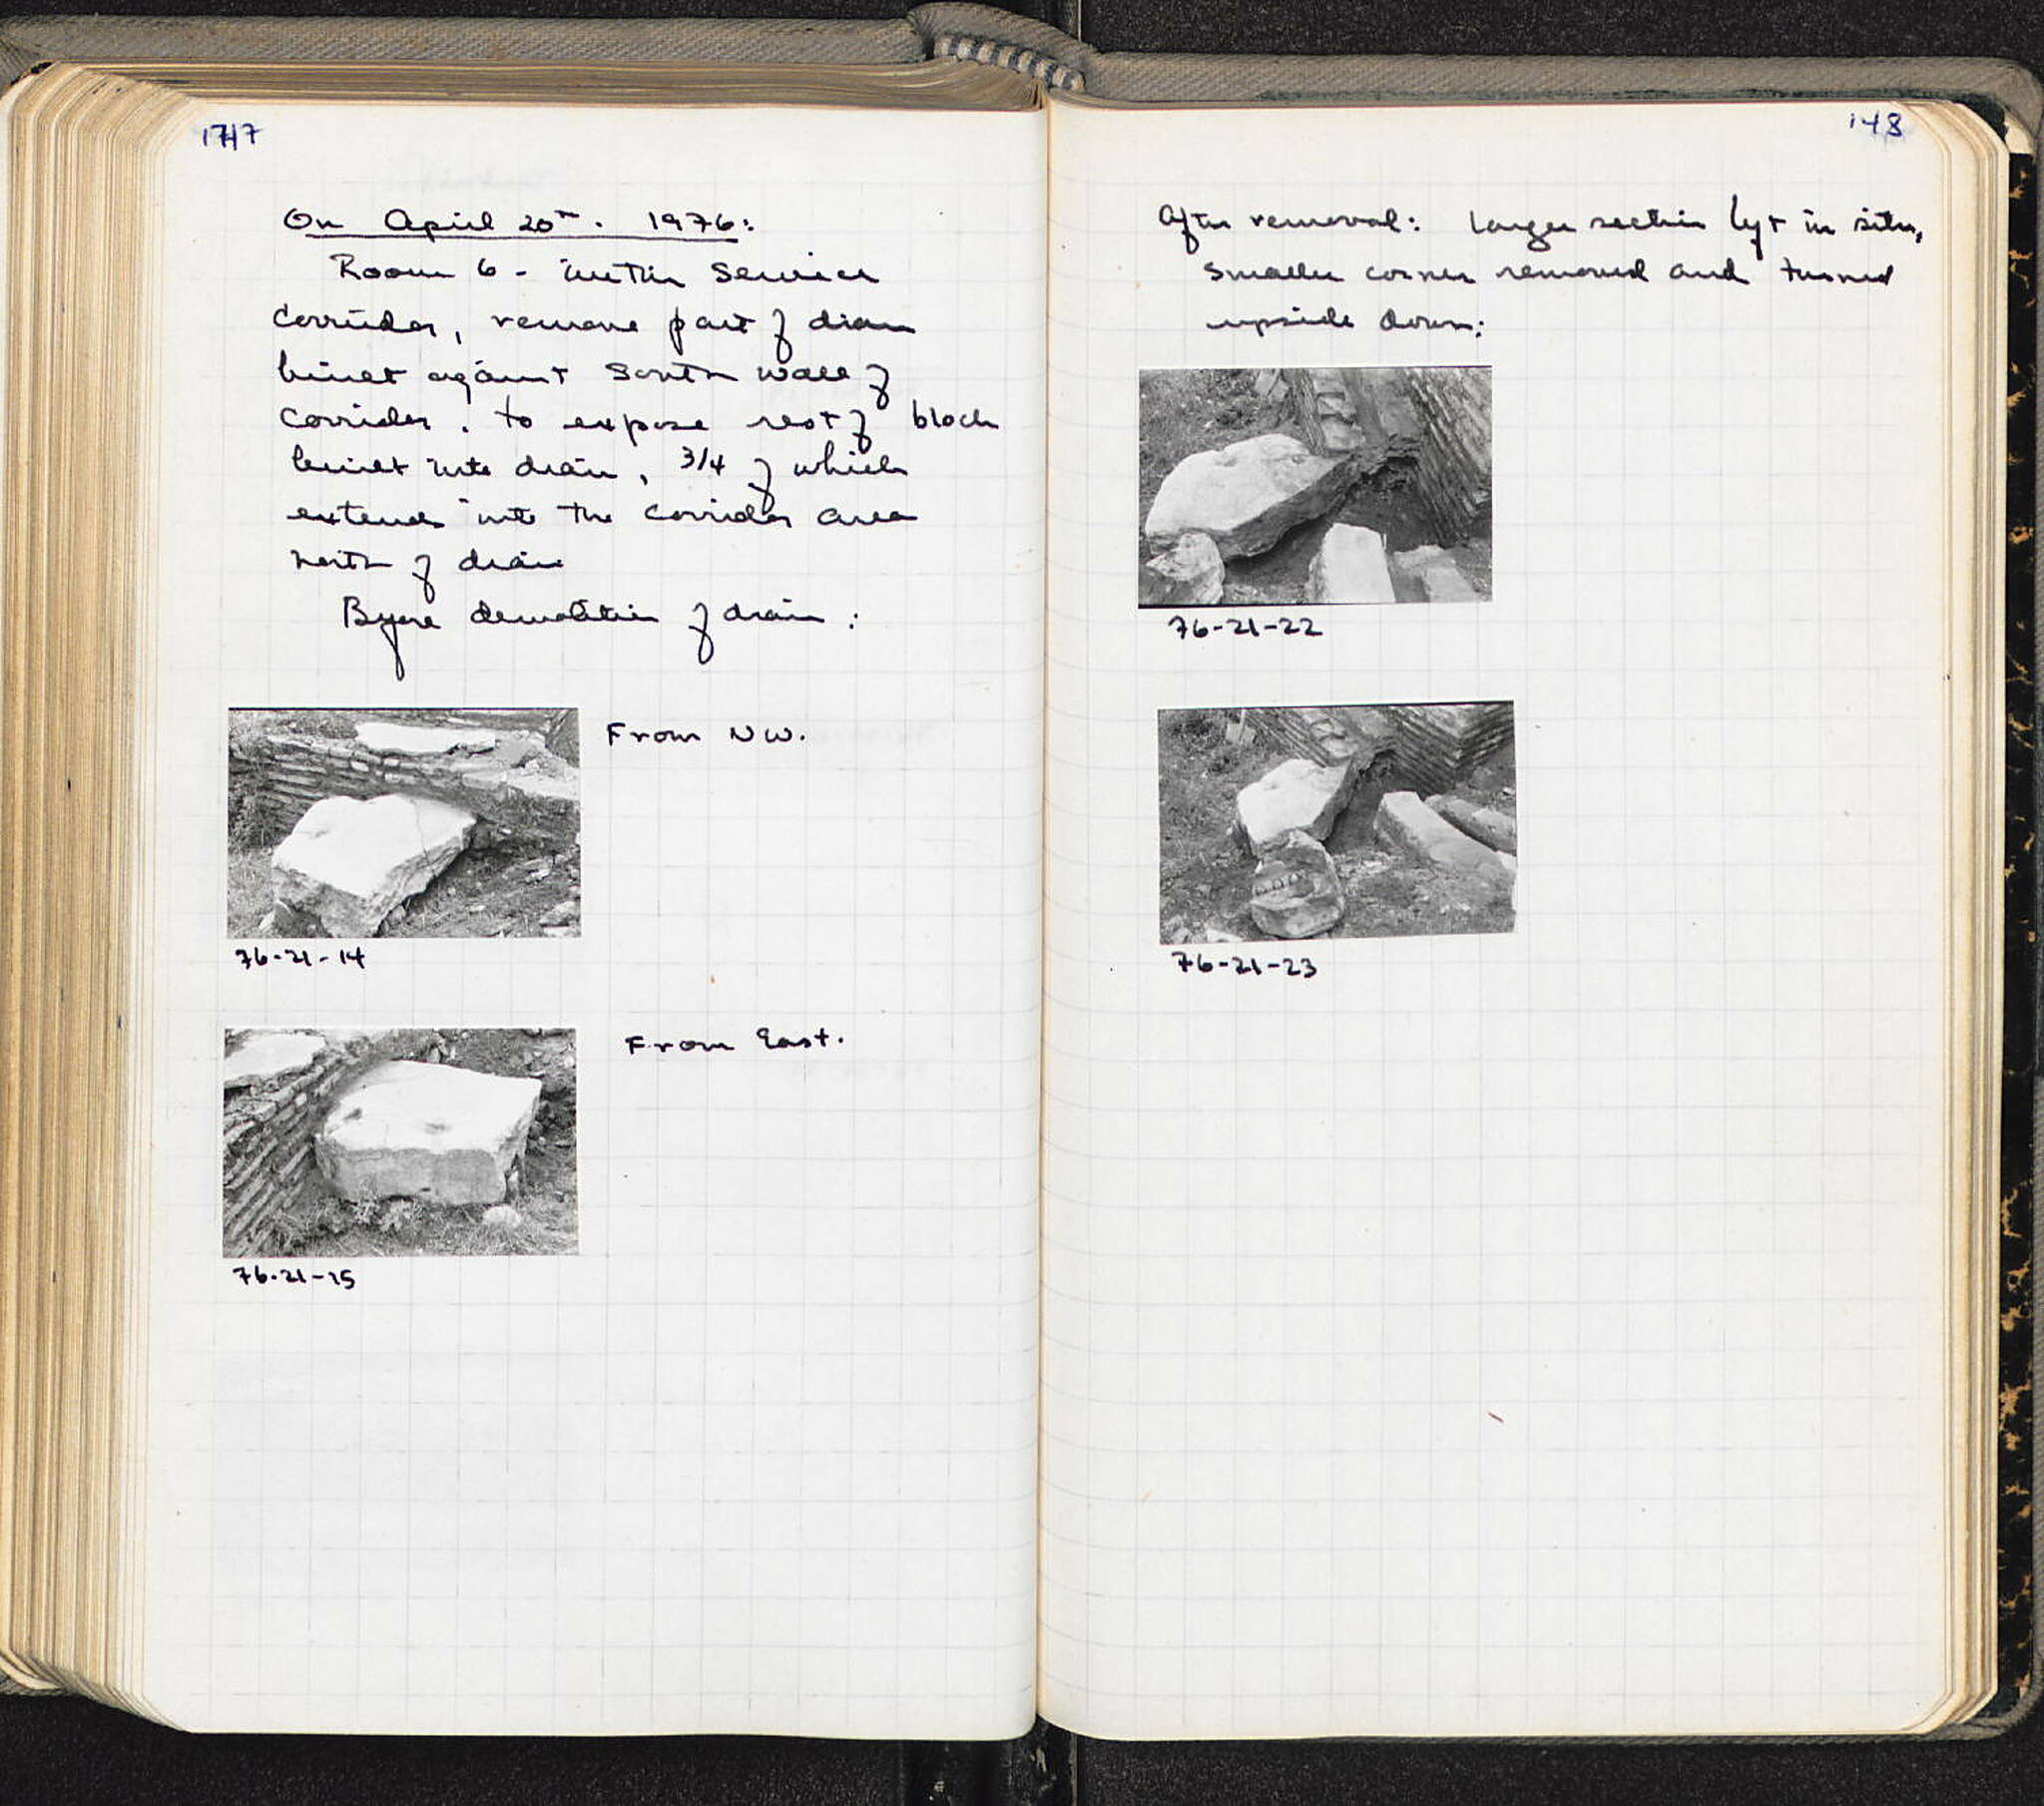 147
On April 20th. 1976:
Room 6 - within Service
Corridor, remove part of drain
built against South wall of
Corridor. to expose rest of block
built into drain, 3/4 of which
extends into the corridor area
north of drain
Before demolition of drain:
From NW.
76-21-14
From East.
76-21-15
148
After removal: larger section left in situ,
smaller corner removed and turned
upside down:
76-21-22
76-21-23